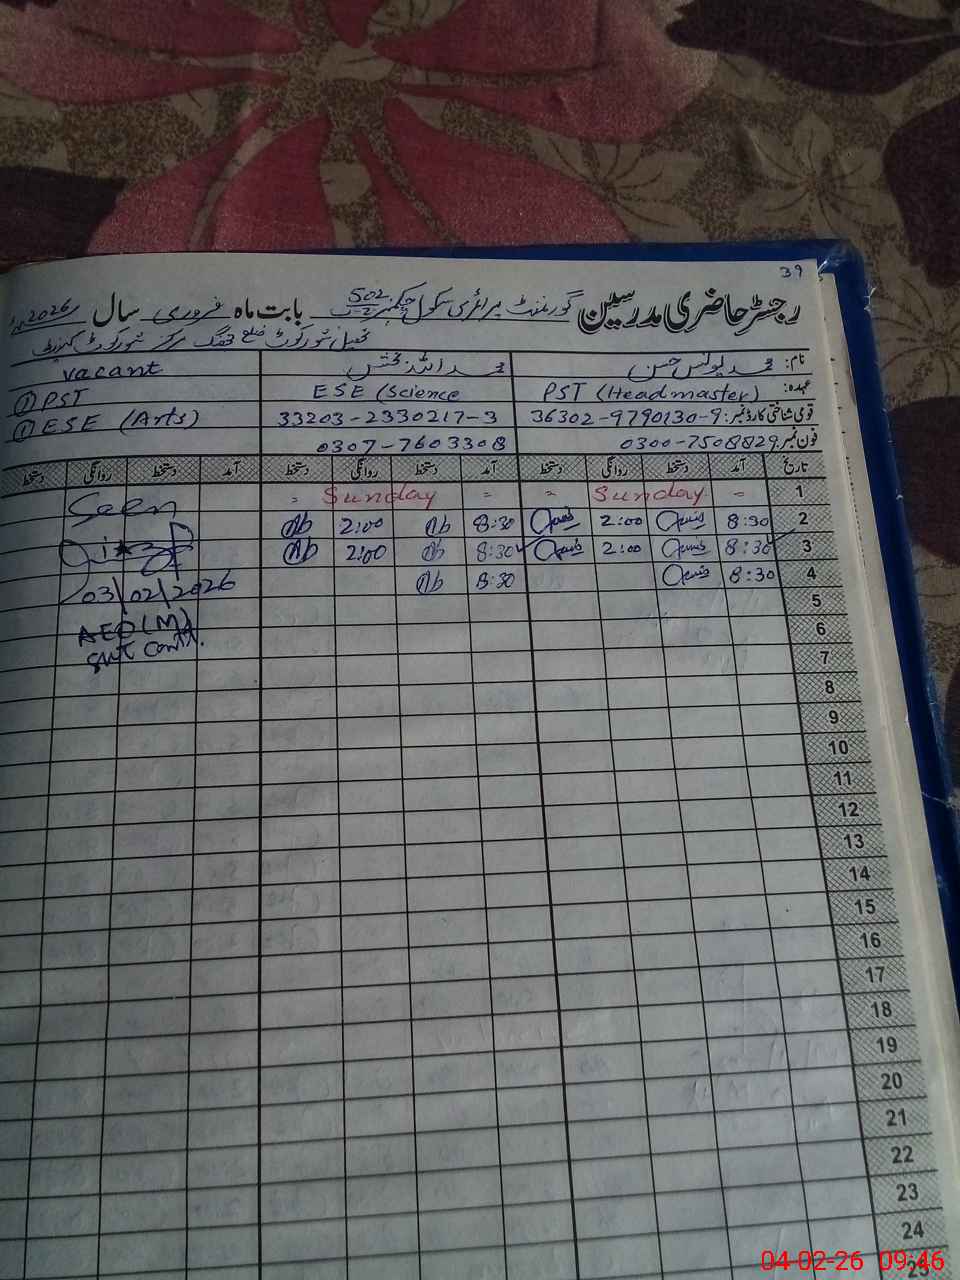 39
رجسٹر حاضری مدرسین گورنمنٹ پرائمری سکول چکنمبر 502 بابت ماہ فروری سال 2026ء
تحصیل شورکوٹ ضلع جھنگ مرکز شورکوٹ کینٹ
نام: محمد یونس حسن محمد اللہ بخش vacant
عہدہ: PST (Headmaster) ESE (Science ① PST
قومی شناختی کارڈ نمبر: 36302-9790130-9 33203-2330217-3 ① ESE (Arts)
فون نمبر: 0300-7508829 0307-7603308
تاریخ آمد دستخط روانگی دستخط آمد دستخط روانگی دستخط آمد دستخط روانگی دستخط
1 - Sunday - - Sunday - Seen
2 8:30 2:00 8:30 Ab 2:00 Ab
3 8:30 2:00 8:30 Ab 2:00 Ab
4 8:30 8:30 Ab 03/02/2026
5
6 AEO (M)
7
8
9
10
11
12
13
14
15
16
17
18
19
20
21
22
23
24
25
04-02-26 09:46